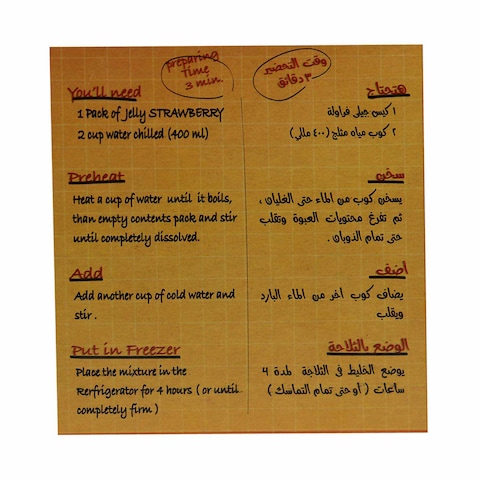 preparing
time
3 min.
You'll need
1 Pack of Jelly STRAWBERRY
2 cup water chilled (400 ml)
Preheat
Heat a cup of water until it boils,
than empty contents pack and stir
until completely dissolved.
Add
Add another cup of cold water and
stir .
Put in Freezer
Place the mixture in the
Rerfrigerator for 4 hours ( or until
completely firm )
وقت التحضير
٣ دقائق
هتحتاج
١ كيس جيلى فراولة
٢ كوب مياه مثلج (٤٠٠ مللي)
سخن
يسخن كوب من الماء حتى الغليان ،
ثم تفرغ محتويات العبوة وتقلب
حتى تمام الذوبان .
أضف
يضاف كوب أخر من الماء البارد
ويقلب
الوضع بالثلاجة
يوضع الخليط فى الثلاجة لمدة ٤
ساعات ( أو حتى تمام التماسك )